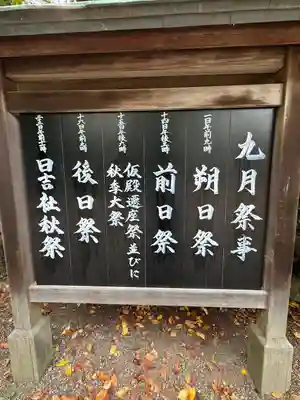 九月祭事
一日午前九時
朔日祭
十四日午後三時
前日祭
十五日午後六時
仮殿遷座祭 並びに
秋季大祭
十六日午前九時
後日祭
日吉社秋祭